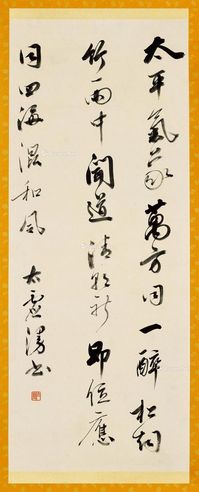 太平氣象萬方同一醉松
竹雨中聞道清新即位應
同四海混和風
太虛書